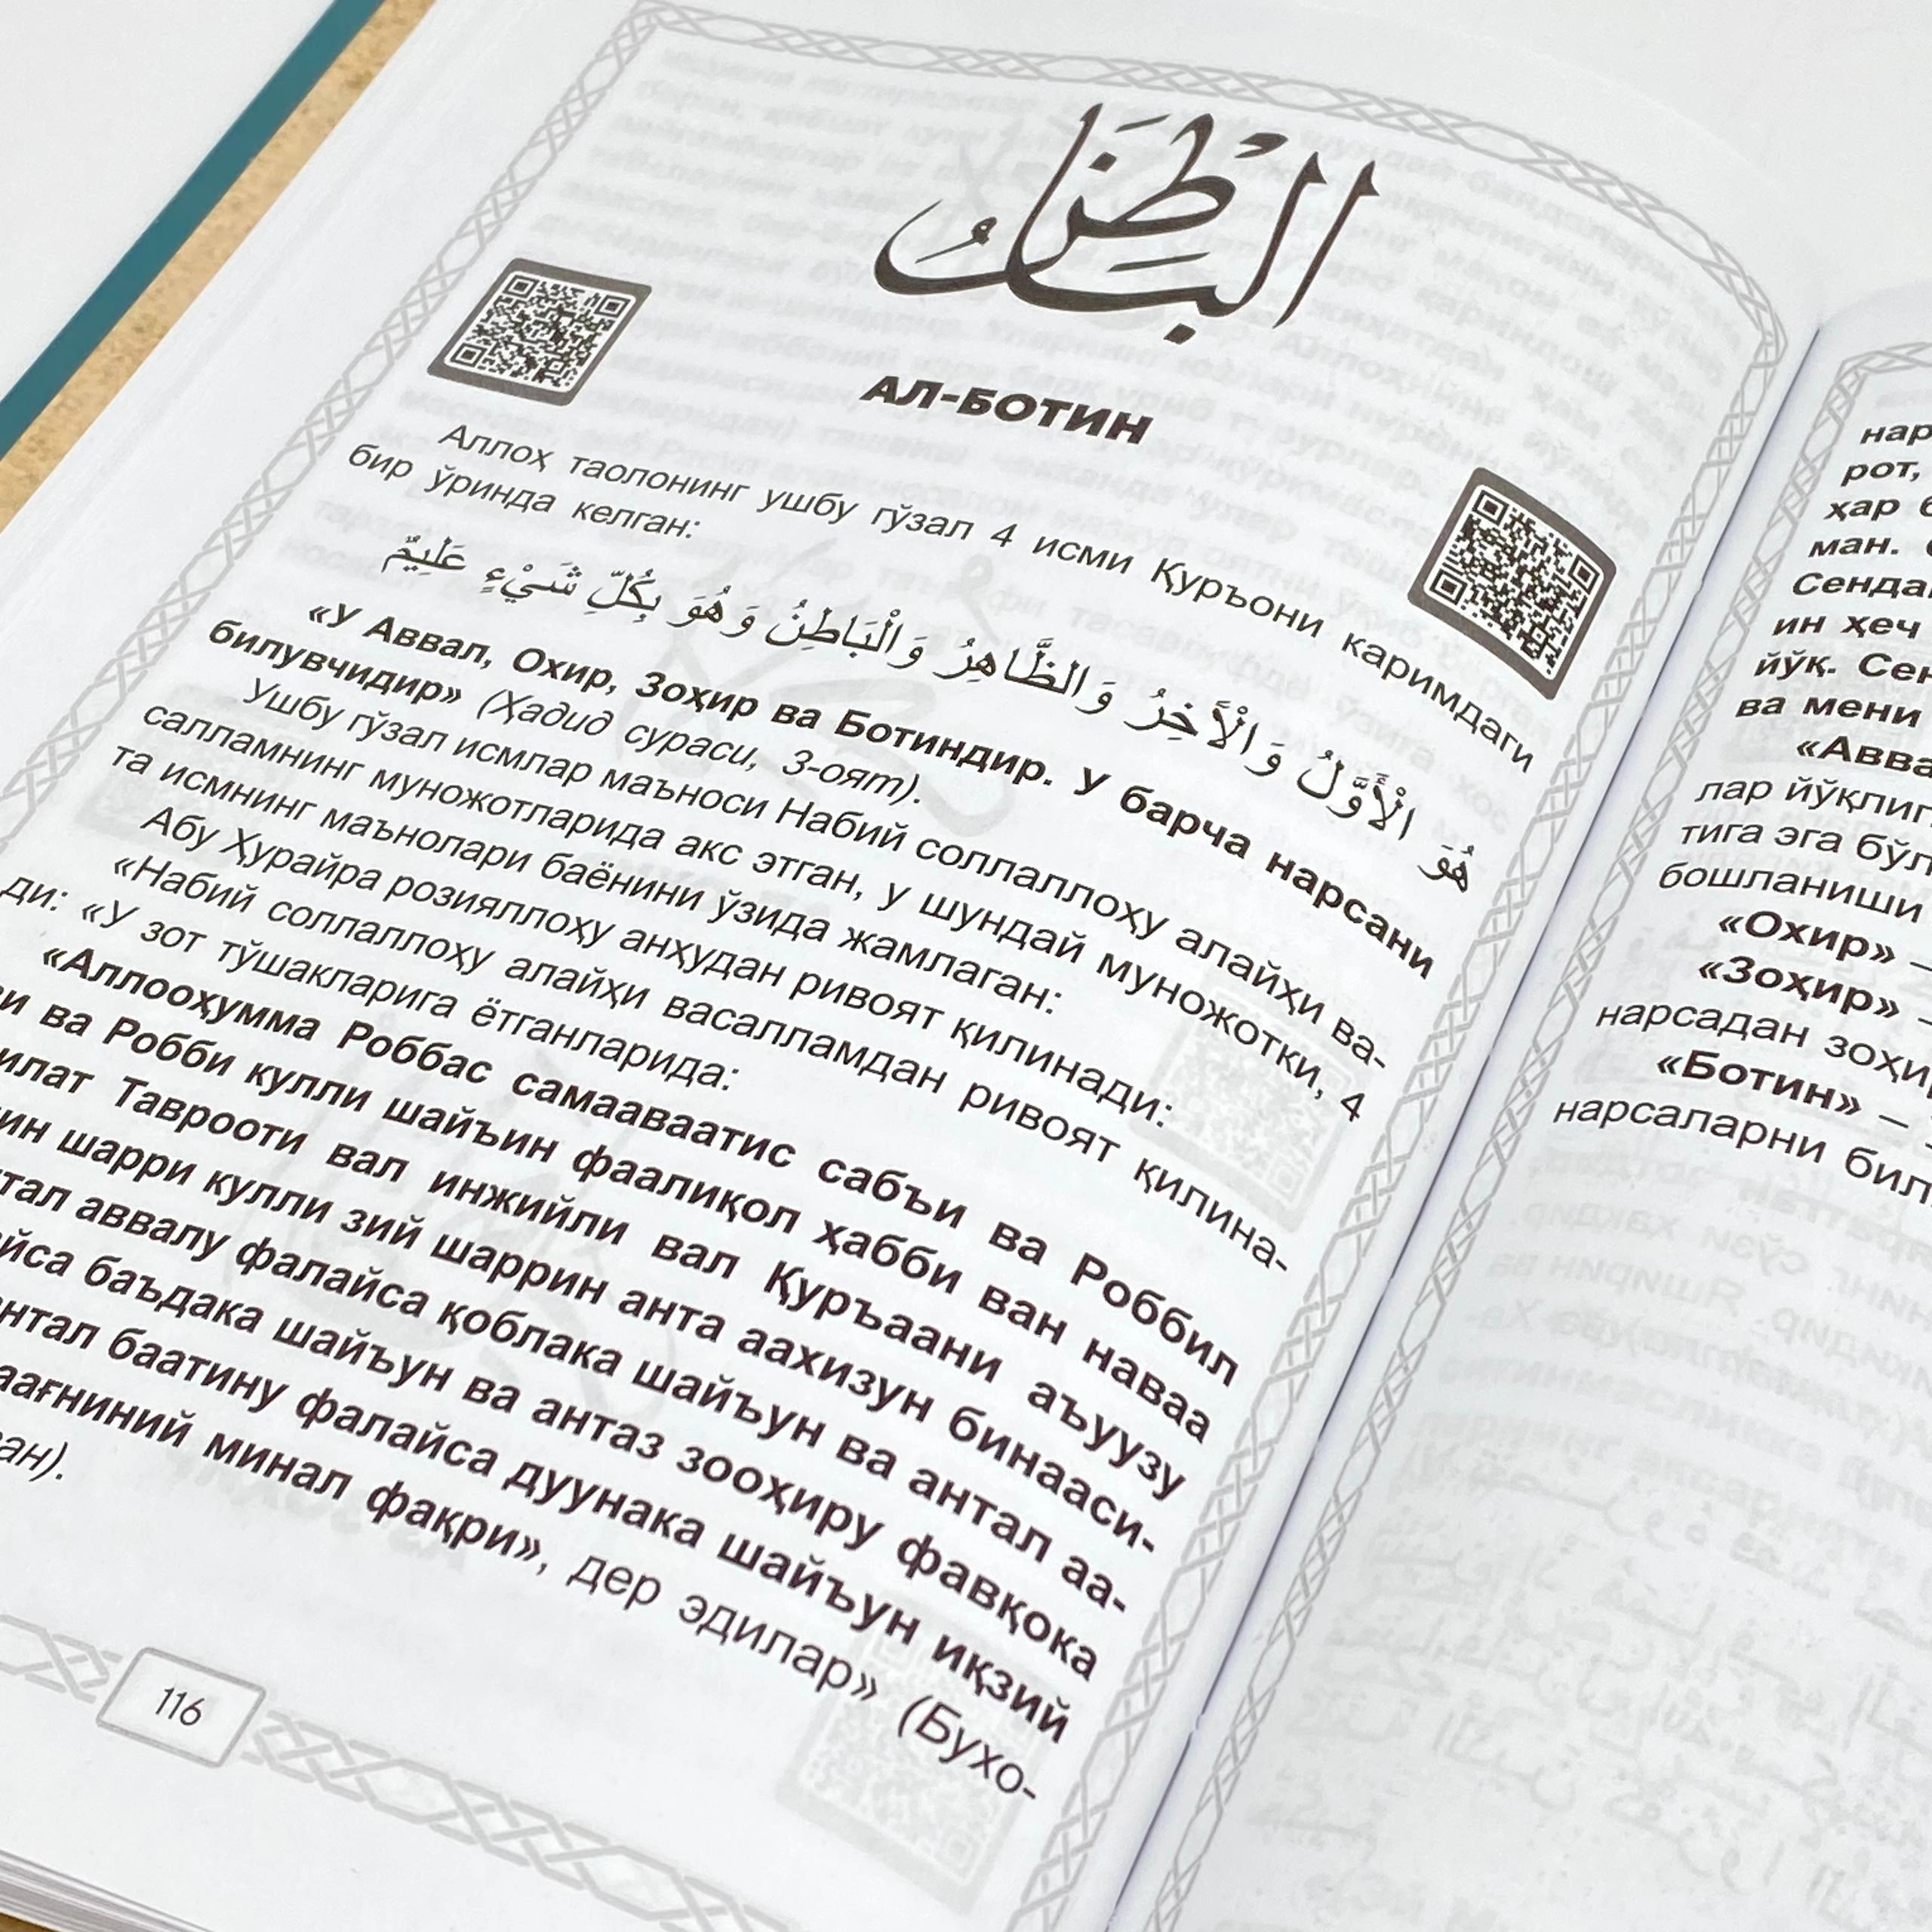 الْبَاطِنُ
АЛ-БОТИН
Аллоҳ таолонинг ушбу гўзал 4 исми Қуръони каримдаги
бир ўринда келган:
هُوَ الْأَوَّلُ وَالْآخِرُ وَالظَّاهِرُ وَالْبَاطِنُ وَهُوَ بِكُلِّ شَيْءٍ عَلِيمٌ
«У Аввал, Охир, Зоҳир ва Ботиндир. У барча нарсани
билувчидир» (Ҳадид сураси, 3-оят).
Ушбу гўзал исмлар маъноси Набий соллаллоҳу алайҳи ва-
салламнинг муножотларида акс этган, у шундай муножотки, 4
та исмнинг маънолари баёнини ўзида жамлаган:
Абу Ҳурайра розияллоҳу анҳудан ривоят қилинади:
«Набий соллаллоҳу алайҳи васалламдан ривоят қилина-
ди: «У зот тўшакларига ётганларида:
«Аллооҳумма Роббас самааваатис сабъи ва Роббил
ва Робби кулли шайъин фаалиқол ҳабби ван наваа
Таврооти вал инжийли вал Қуръаани аъуузу
шарри кулли зий шаррин анта аахизун бинааси-
аввалу фалайса қоблака шайъун ва антал аа-
баъдака шайъун ва антаз зооҳиру фавқока
баатину фалайса дуунака шайъун иқзий
минал фақри», дер эдилар» (Бухо-
116
нар
рот,
ҳар
ман.
Сенда
ин ҳеч
йўқ. Сен
ва мени
«Авва
лар йўқлиг
тига эга бўл
бошланиши
«Охир» —
«Зоҳир» –
нарсадан зоҳи
«Ботин» –
нарсаларни бил